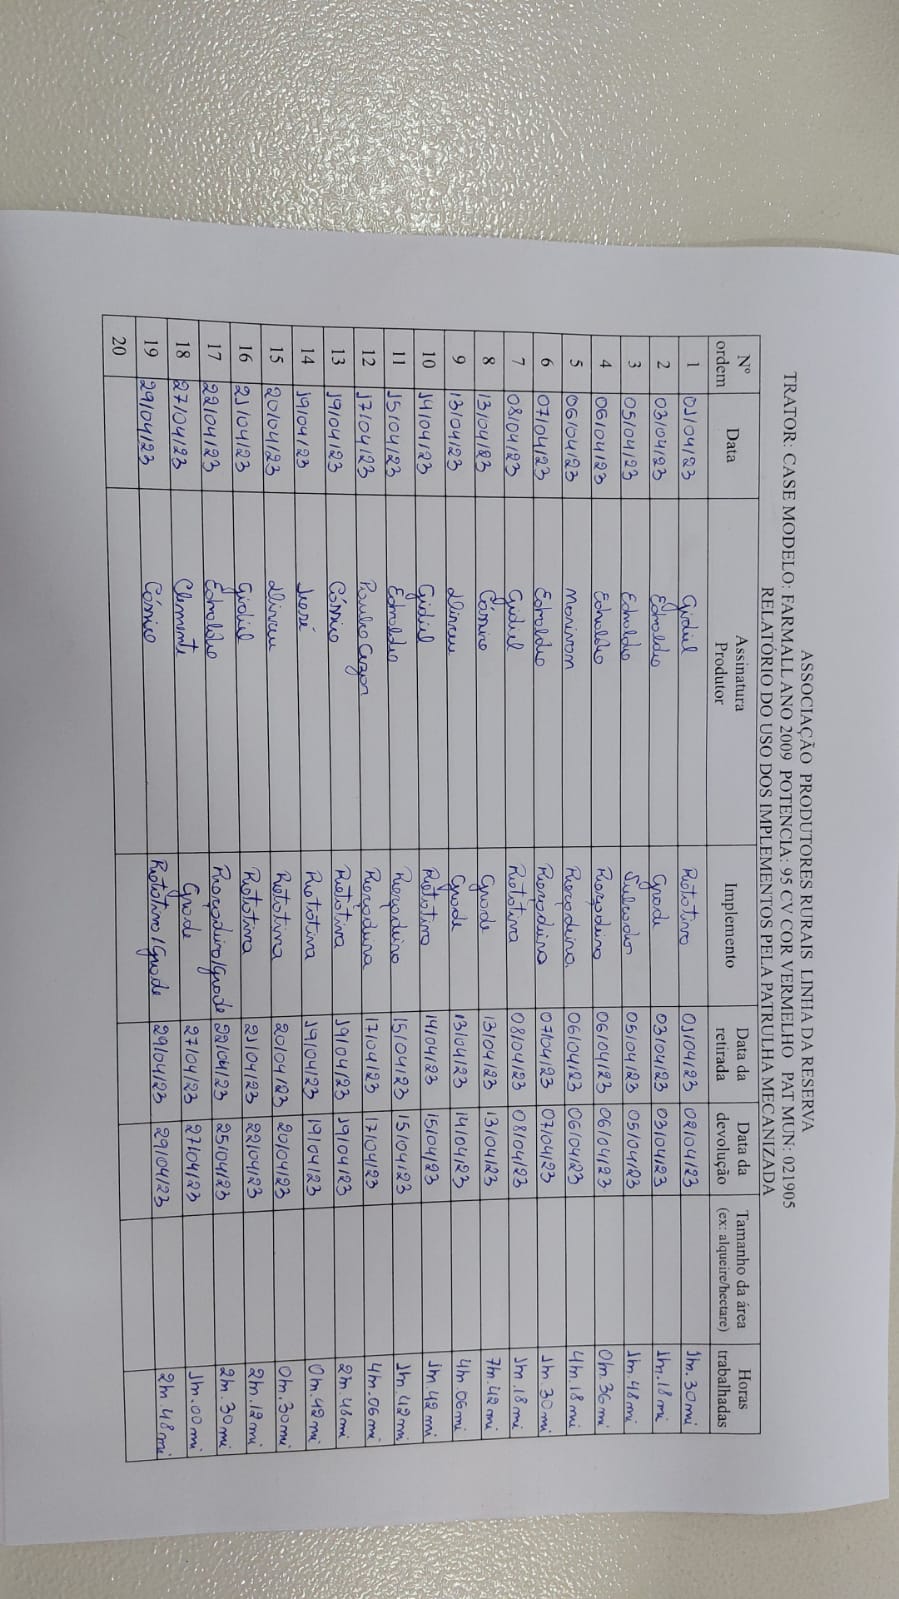 ASSOCIAÇÃO PRODUTORES RURAIS LINHA DA RESERVA
TRATOR: CASE MODELO: FARMALL ANO 2009 POTENCIA: 95 CV COR VERMELHO PAT MUN: 021905
RELATÓRIO DO USO DOS IMPLEMENTOS PELA PATRULHA MECANIZADA
Nº ordem Data Assinatura Produtor Implemento Data da retirada Data da devolução Tamanho da área (ex: alqueire/hectare) Horas trabalhadas
1 01/04/23 Gidiel Rototiva 01/04/23 02/04/23 1h.30mi
2 03/04/23 Ednaldo Grade 03/04/23 03/04/23 1h.18mi
3 05/04/23 Ednaldo Sulcador 05/04/23 05/04/23 1h.48mi
4 06/04/23 Ednaldo Roçadeira 06/04/23 06/04/23 0h.36mi
5 06/04/23 Roçadeira 06/04/23 06/04/23 4h.18mi
6 07/04/23 Ednaldo Roçadeira 07/04/23 07/04/23 1h.30mi
7 08/04/23 Gidiel Rototiva 08/04/23 08/04/23 1h.18mi
8 13/04/23 Cássico Grade 13/04/23 13/04/23 7h.42mi
9 13/04/23 Dirceu Grade 13/04/23 14/04/23 4h.06mi
10 14/04/23 Gidiel Rototiva 14/04/23 15/04/23 1h.42mi
11 15/04/23 Ednaldo Roçadeira 15/04/23 15/04/23 1h.42mi
12 17/04/23 Paulo Cezar Roçadeira 17/04/23 17/04/23 4h.06mi
13 19/04/23 Cássico Rototiva 19/04/23 19/04/23 2h.48mi
14 19/04/23 José Rototiva 19/04/23 19/04/23 0h.42mi
15 20/04/23 Dirceu Rototiva 20/04/23 20/04/23 0h.30mi
16 21/04/23 Gidiel Rototiva 21/04/23 22/04/23 2h.12mi
17 22/04/23 Ednaldo Roçadeira/Grade 22/04/23 25/04/23 2h.30mi
18 27/04/23 Clemente Grade 27/04/23 27/04/23 1h.00mi
19 29/04/23 Cássico Rototiva/Grade 29/04/23 29/04/23 2h.48mi
20